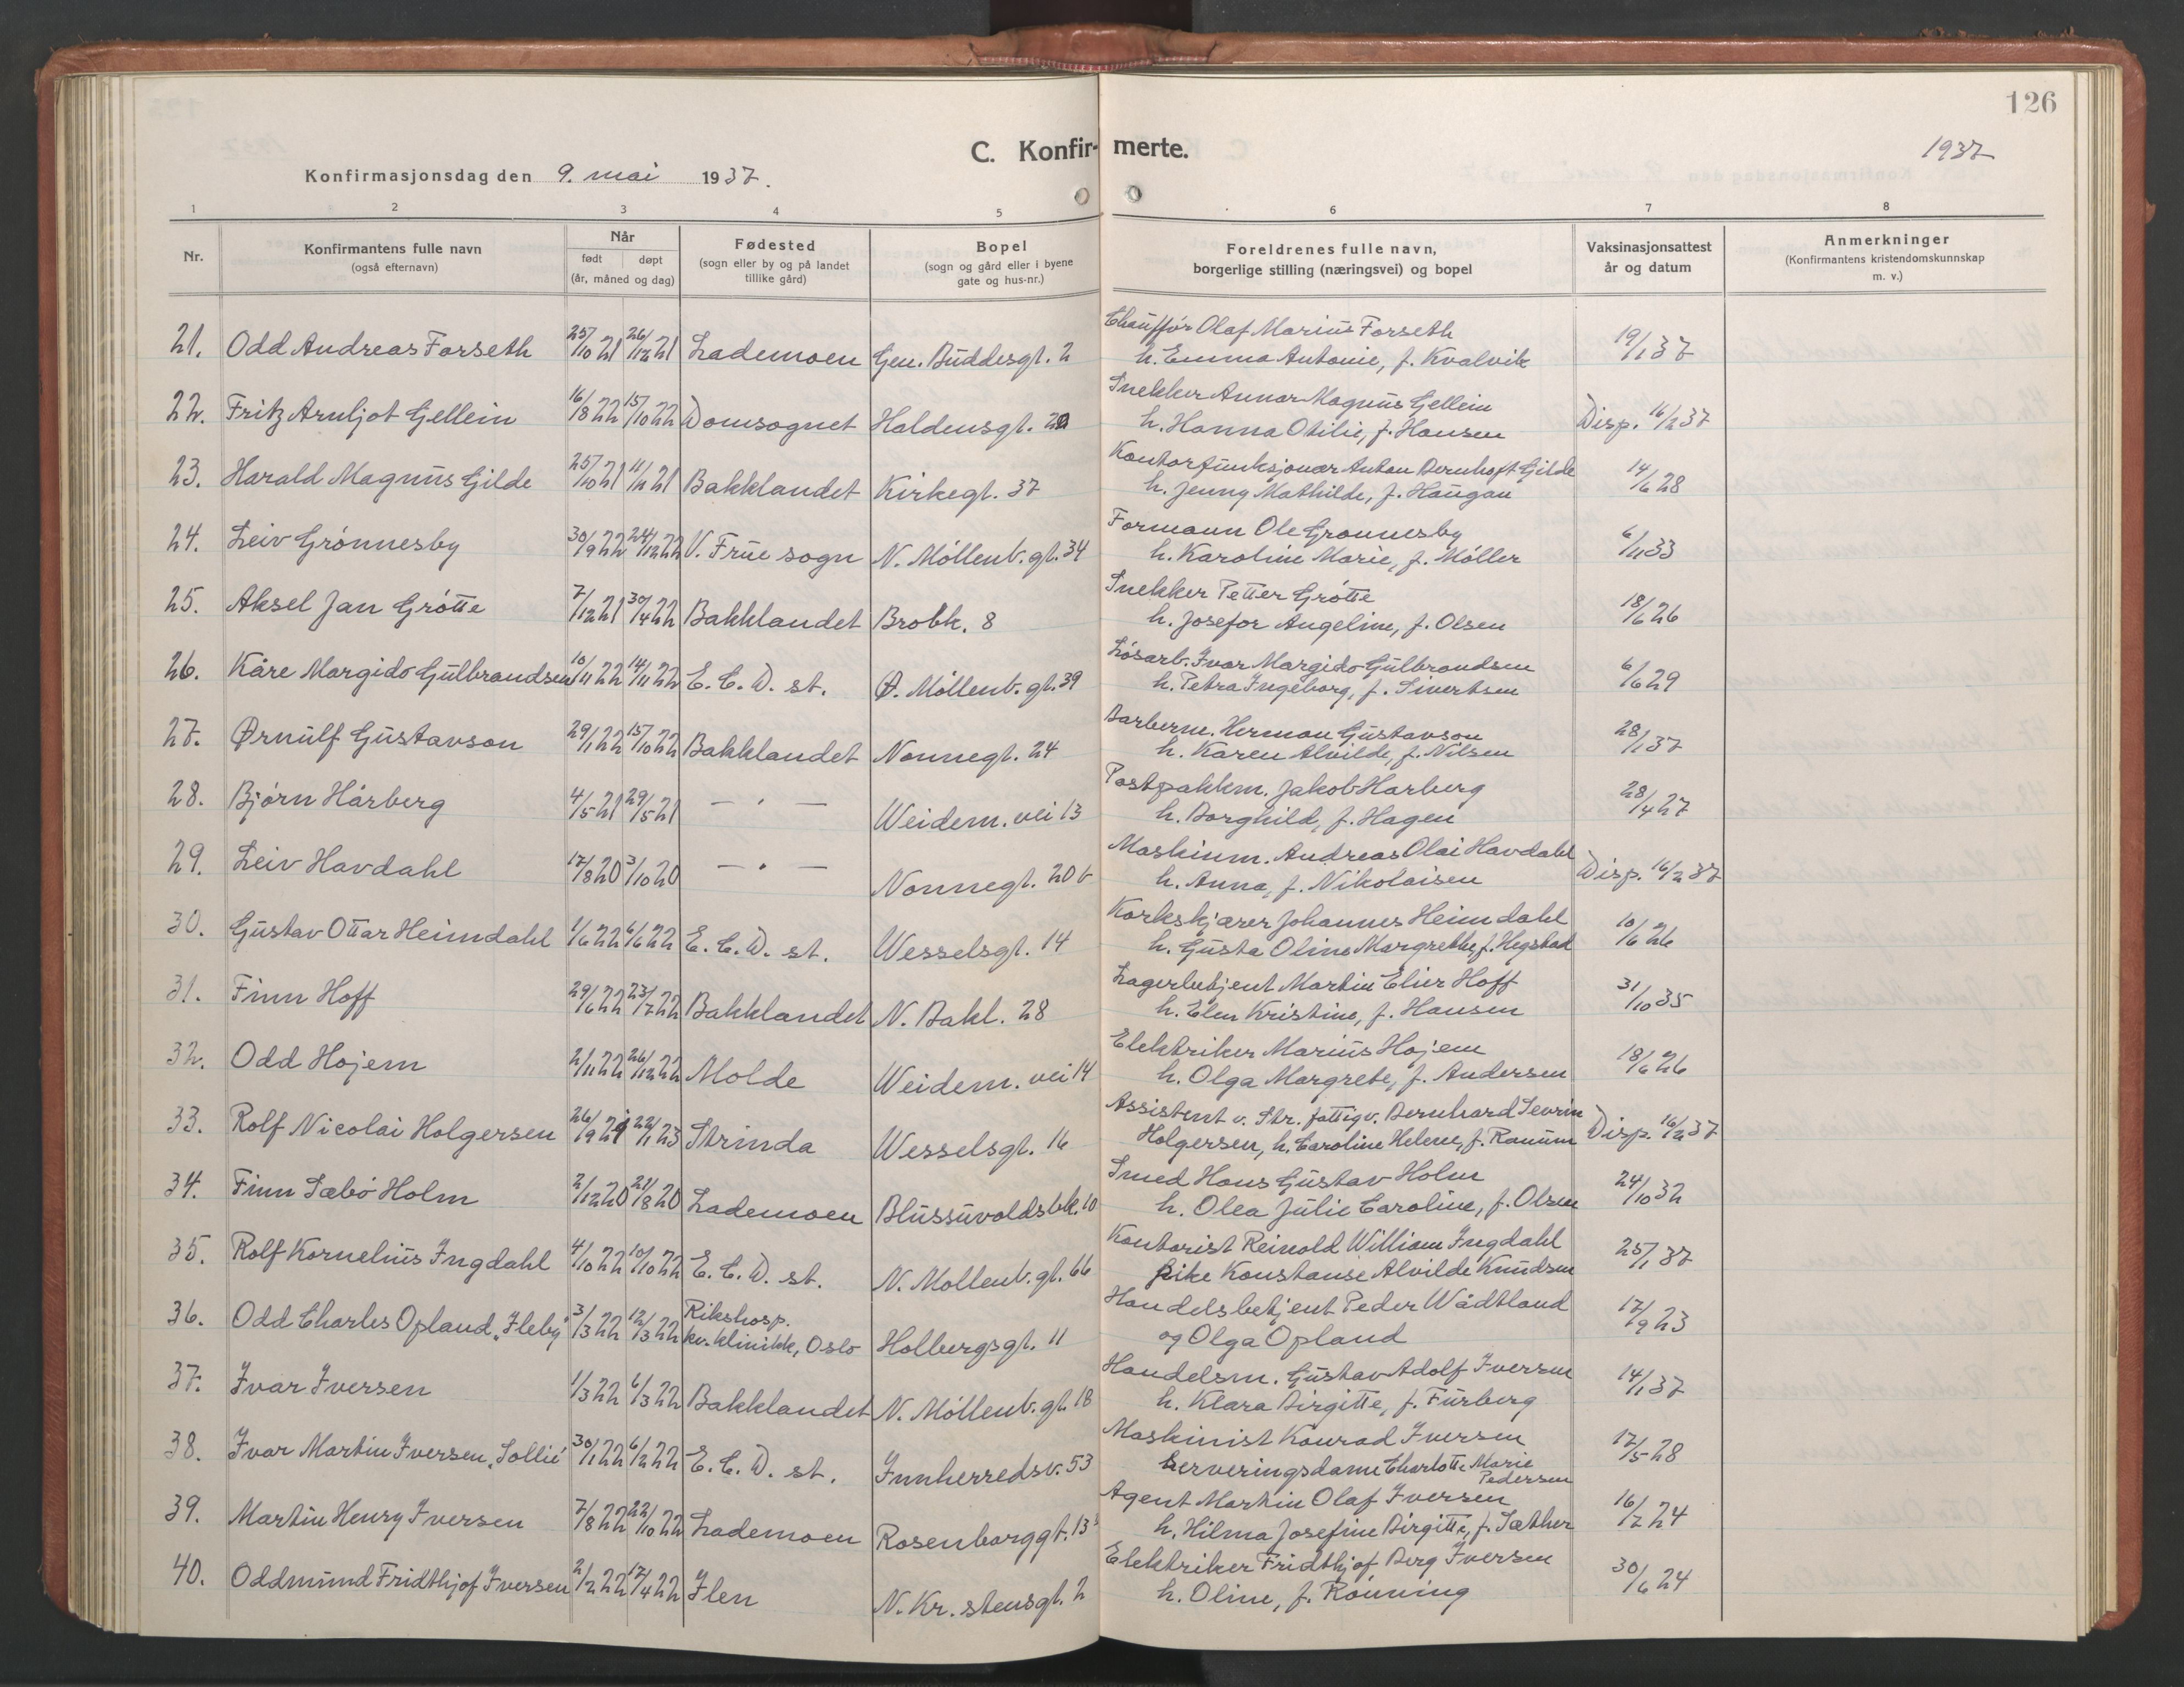 126
C. Konfirmerte.
1937
Konfirmasjonsdag den 9. mai 1937.
1 2 3 4 5 6 7 8
Nr.
Konfirmantens fulle navn
(også efternavn)
Når
født døpt
(år, måned og dag)
Fødested
(sogn eller by og på landet
tillike gård)
Bopel
(sogn og gård eller i byene
gate og hus-nr.)
Foreldrenes fulle navn,
borgerlige stilling (næringsvei) og bopel
Vaksinasjonsattest
år og datum
Anmerkninger
(Konfirmantens kristendomskunnskap
m. v.)
21. Odd Andreas Forseth 25/10 21 26/12 21 Lademoen Gen. Buddesgt. 2
Chauffør Olaf Marius Forseth
h. Emma Antonie, f. Kvalvik
19/1 37
22. Fritz Arnljot Gellein 16/8 22 15/10 22 Domsognet Haldensgt.
Snekker Annar Magnus Gellein
h. Hanna Otilie, f. Hansen
Disp. 16/2 37
23. Harald Magnus Gilde 25/10 21 11/12 21 Bakklandet Kirkegt. 37
Kontorfunksjonær Anton Bernhoft Gilde
h. Jenny Mathilde, f. Haugan
14/6 28
24. Leiv Grønnesby 30/9 22 24/12 22 V. Frue sogn N. Möllenb. gt. 34
Formann Ole Grønnesby
h. Karoline Marie, f. Möller
6/11 33
25. Aksel Jan Grøtte 7/12 21 30/4 22 Bakklandet Brobk. 8
Snekker Petter Grøtte
h. Josefor Angeline, f. Olsen
18/6 26
26. Kåre Margido Gulbrandsen 10/11 22 14/11 22 E. C. D. st. Ø. Möllenb. gt. 39
Løsarb. Ivar Margido Gulbrandsen
h. Petra Ingeborg, f. Sivertsen
6/6 29
27. Ørnulf Gustavson 29/1 22 15/10 22 Bakklandet Nonnegt. 24
Barberm. Herman Gustavson
h. Karen Alvilde, f. Nilsen
28/1 37
28. Bjørn Hårberg 4/5 21 29/5 21 — " — Weidem. vei 13
Postpakkm. Jakob Harberg
h. Borghild, f. Hagen
28/4 27
29. Leiv Havdahl 17/8 20 3/10 20 — " — Nonnegt. 20 b
Maskinm. Andreas Olai Havdahl
h. Anna, f. Nikolaisen
Disp. 16/2 37
30. Gustav Ottar Heimdahl 1/6 22 6/6 22 E. C. D. st. Wesselsgt. 14
Korkskjærer Johannes Heimdahl
h. Gusta Oline Margrethe, f. Hegstad
10/6 26
31. Finn Hoff 29/6 22 23/7 22 Bakklandet N. Bakl. 28
Lagerbetjent Martin Elier Hoff
h. Elen Kristine, f. Hansen
31/10 35
32. Odd Hojem 2/11 22 26/12 22 Molde Weidem. vei 14
Elektriker Marius Hojem
h. Olga Margrete, f. Andersen
18/6 26
33. Rolf Nicolai Holgersen 26/9 21 22/1 23 Strinda Wesselsgt. 16
Assistent v. Str. fattigv. Bernhard Severin
Holgersen, h. Caroline Helene, f. Ranum
Disp. 16/2 37
34. Finn Sæbø Holm 2/12 20 21/8 20 Lademoen Blussuvoldsbk. 10
Smed Hans Gustav Holm
h. Olea Julie Caroline, f. Olsen
24/10 32
35. Rolf Kornelius Ingdahl 4/10 22 10/10 22 E. C. D. st. N. Mollenb. gt. 66
Kontorist Reinold William Ingdahl
pike Konstanse Alvilde Knudsen
25/1 37
36. Odd Charles Opland „Ileby" 3/3 22 12/3 22 Rikshosp.
kv. klinikk, Oslo Holbergsgt. 11
Handelsbetjent Peder Wådtland
og Olga Opland
17/9 23
37. Ivar Iversen 1/3 22 6/3 22 Bakklandet N. Möllenb. gt. 18
Handelsm. Gustav Adolf Iversen
h. Klara Birgitte, f. Furberg
14/1 37
38. Ivar Martin Iversen „Sollie" 30/1 22 6/2 22 E. C. D. st. Innherredsv. 53
Maskinist Konrad Iversen
Serveringsdame Charlotte Marie
Pedersen
17/5 28
39. Martin Henry Iversen 7/8 22 22/10 22 Lademoen Rosenborggt. 13
Agent Martin Olaf Iversen
h. Hilma Josefine Birgitte, f. Sæther
16/2 24
40. Oddmund Fridthjof Iversen 2/2 22 17/4 22 Ilen N. Kr. stensgt. 2
Elektriker Fridthjof Berg Iversen
h. Oline, f. Rönning
30/6 24